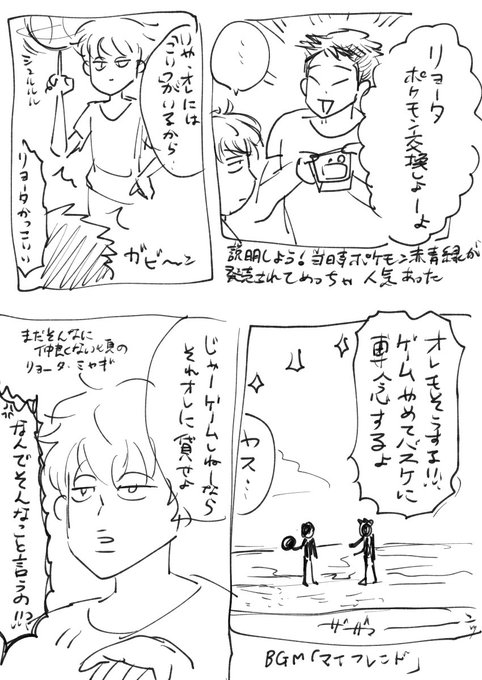 リョータ
ポケモン交換しよーよ
説明しよう!当時ポケモン赤青緑が
発売されてめっちゃ人気あった
いや、オレには
こいつがいるから
シュルルル
リョータかっこいい
ガビ〜ン
オレもそうする!!
ゲームやめてバスケに
専念するよ
ヤス…
ザザ
BGM「マイフレンド」
じゃーゲームしねーなら
それオレに貸せよ
まだそんなに
仲良くない頃の
リョータ・ミヤギ
なんでそんなこと言うの!!?